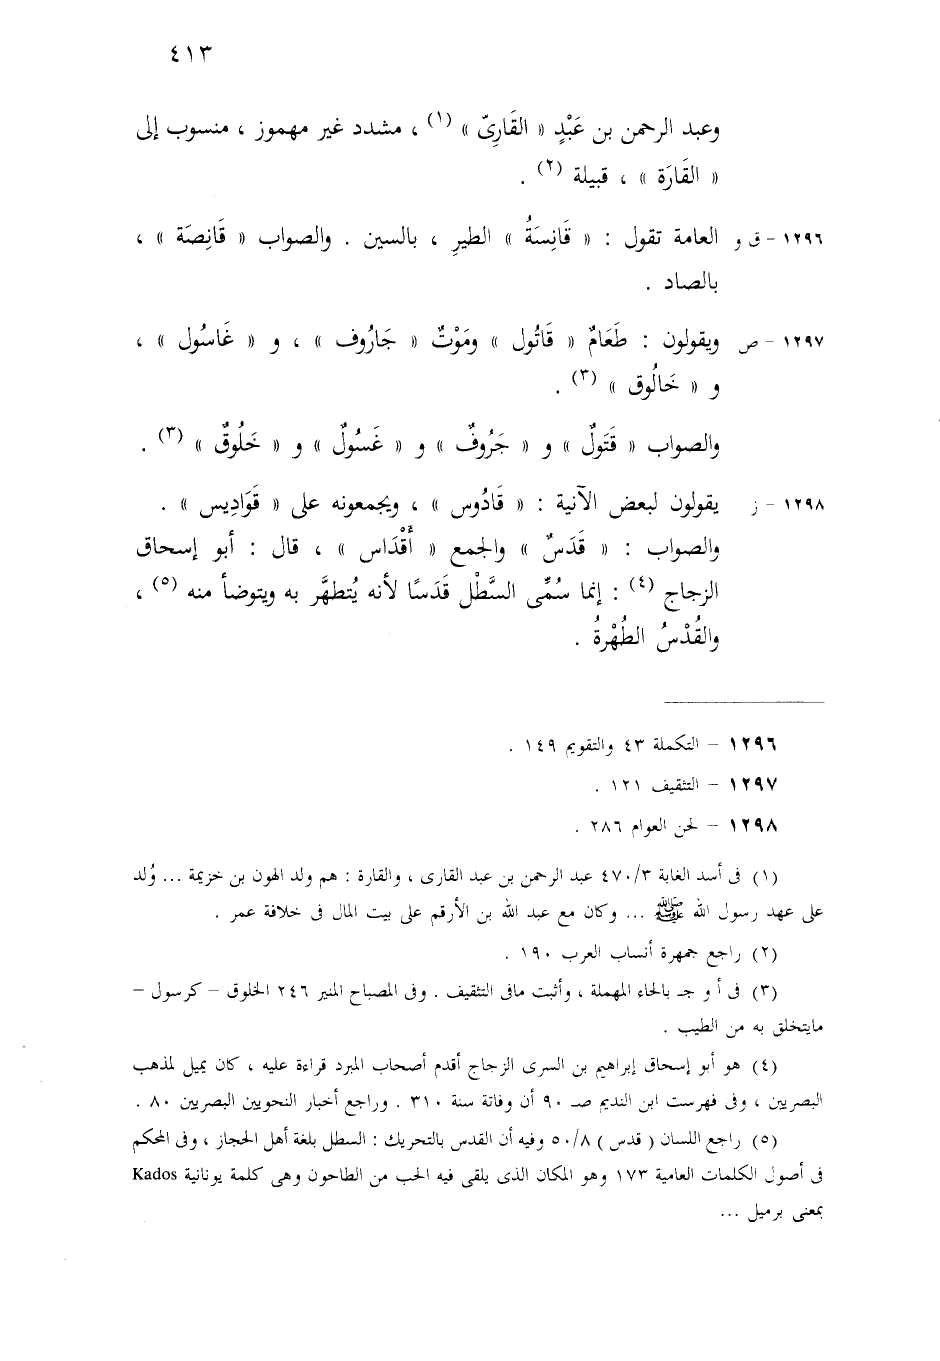 ٤١٣
وعبد الرحمن بن عَبْدٍ « القَارِىّ » (١) ، مشدد غير مهموز ، منسوب إلى
« القَارَة » ، قبيلة (٢) .
١٢٩٦ - ق و العامة تقول : « قَانِسَةُ » الطيرِ ، بالسين . والصواب « قَانِصَة » ،
بالصاد .
١٢٩٧ - ص ويقولون : طَعَامٌ « قَاتُول » ومَوْتٌ « جَارُوف » ، و « غَاسُول » ،
و « خَالُوق » (٣) .
والصواب « قَتَولٌ » و « جَرُوفٌ » و « غَسُولٌ » و « خَلُوقٌ » (٣) .
١٢٩٨ - ز يقولون لبعض الآنية : « قَادُوس » ، ويجمعونه على « قَوَادِيس » .
والصواب : « قَدَسٌ » والجمع « أَقْدَاس » ، قال : أبو إسحاق
الزجاج (٤) : إنما سُمِّى السَّطْل قَدَسًا لأنه يُتطهَّر به ويتوضأ منه (٥) ،
والقُدْسُ الطُهْرةُ .
١٢٩٦ – التكملة ٤٣ والتقويم ١٤٩ .
١٢٩٧ – التثقيف ١٢١ .
١٢٩٨ – لحن العوام ٢٨٦ .
(١) فى أسد الغابة ٤٧٠/٣ عبد الرحمن بن عبد القارى ، والقارة : هم ولد الهون بن خزيمة ... وُلد
على عهد رسول الله ﷺ ... وكان مع عبد الله بن الأرقم على بيت المال فى خلافة عمر .
(٢) راجع جمهرة أنساب العرب ١٩٠ .
(٣) فى أ و جـ بالحاء المهملة ، وأثبت مافى التثقيف . وفى المصباح المنير ٢٤٦ الخلوق – كرسول –
مايتخلق به من الطيب .
(٤) هو أبو إسحاق إبراهيم بن السرى الزجاج أقدم أصحاب المبرد قراءة عليه ، كان يميل لمذهب
البصريين ، وفى فهرست ابن النديم صـ ٩٠ أن وفاتة سنة ٣١٠ . وراجع أخبار النحويين البصريين ٨٠ .
(٥) راجع اللسان ( قدس ) ٥٠/٨ وفيه أن القدس بالتحريك : السطل بلغة أهل الحجاز ، وفى المحكم
فى أصول الكلمات العامية ١٧٣ وهو المكان الذى يلقى فيه الحب من الطاحون وهى كلمة يونانية Kados
بمعنى برميل ...